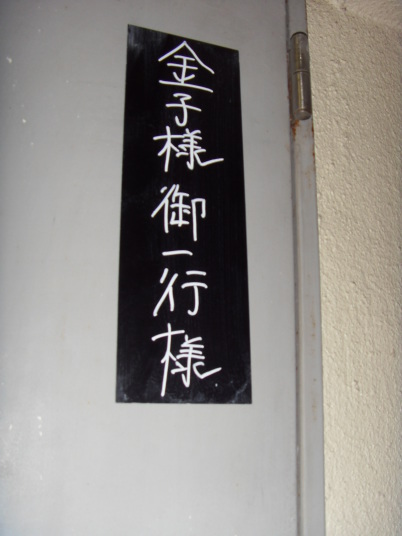 金子様御一行様